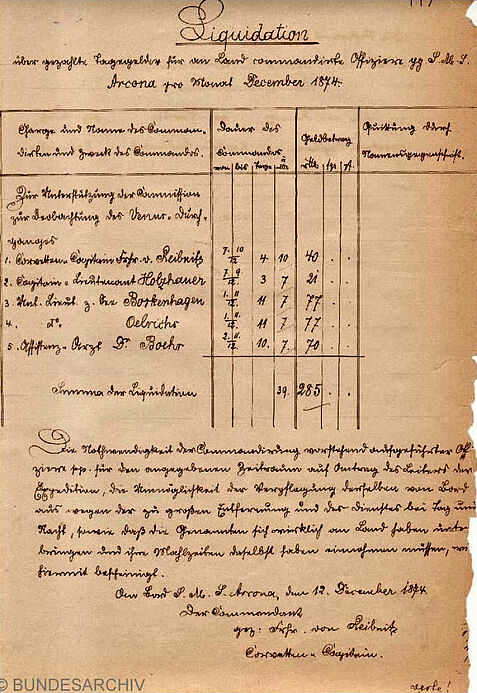 Liquidation
über gezahlte Tagegelder für an Land commandirte Offiziere pp S. M. S.
Arcona pro Monat December 1874.
Charge und Name des Comman-
dirten und Zweck des Commandos.
Dauer des
Commandos
von bis Tage à Mk
Geldbetrag
Mk Sgr. Pf.
Quittung durch
Namensgegenschrift.
Zur Unterstützung der Commission
zur Beobachtung des Venus-Durch-
ganges
1. Corvetten-Capitain Frhr. v. Reibnitz 7. 10/12. 4 10 40 . .
2. Capitain-Lieutenant Holzhauer 7. 9/12. 3 7 21 . .
3. Unt. Lieut. z. See Borkenhagen 1. 11./12. 11 7 77 . .
4. do. Oelrichs 1. 11./12. 11 7 77 . .
5. Assistenz-Arzt Dr. Boehr 2. 11./12. 10. 7. 70 . .
Summa der Liquidation 39. 285 . .
Die Nothwendigkeit der Commandirung vorstehend aufgeführter Of-
fiziere pp. für den angegebenen Zeitraum auf Antrag des Leiters der
Expedition, die Unmöglichkeit der Verpflegung derselben von Bord
aus wegen der zu großen Entfernung und des Dienstes bei Tag und
Nacht, sowie daß die Genannten sich wirklich an Land haben unter
bringen und ihre Mahlzeiten daselbst haben einnehmen müssen, wi
hiermit bescheinigt.
An Bord S. M. S. Arcona, den 12. December 1874
Der Commandant
gez: Frhr. von Reibnitz
Corvetten-Capitain.
© BUNDESARCHIV